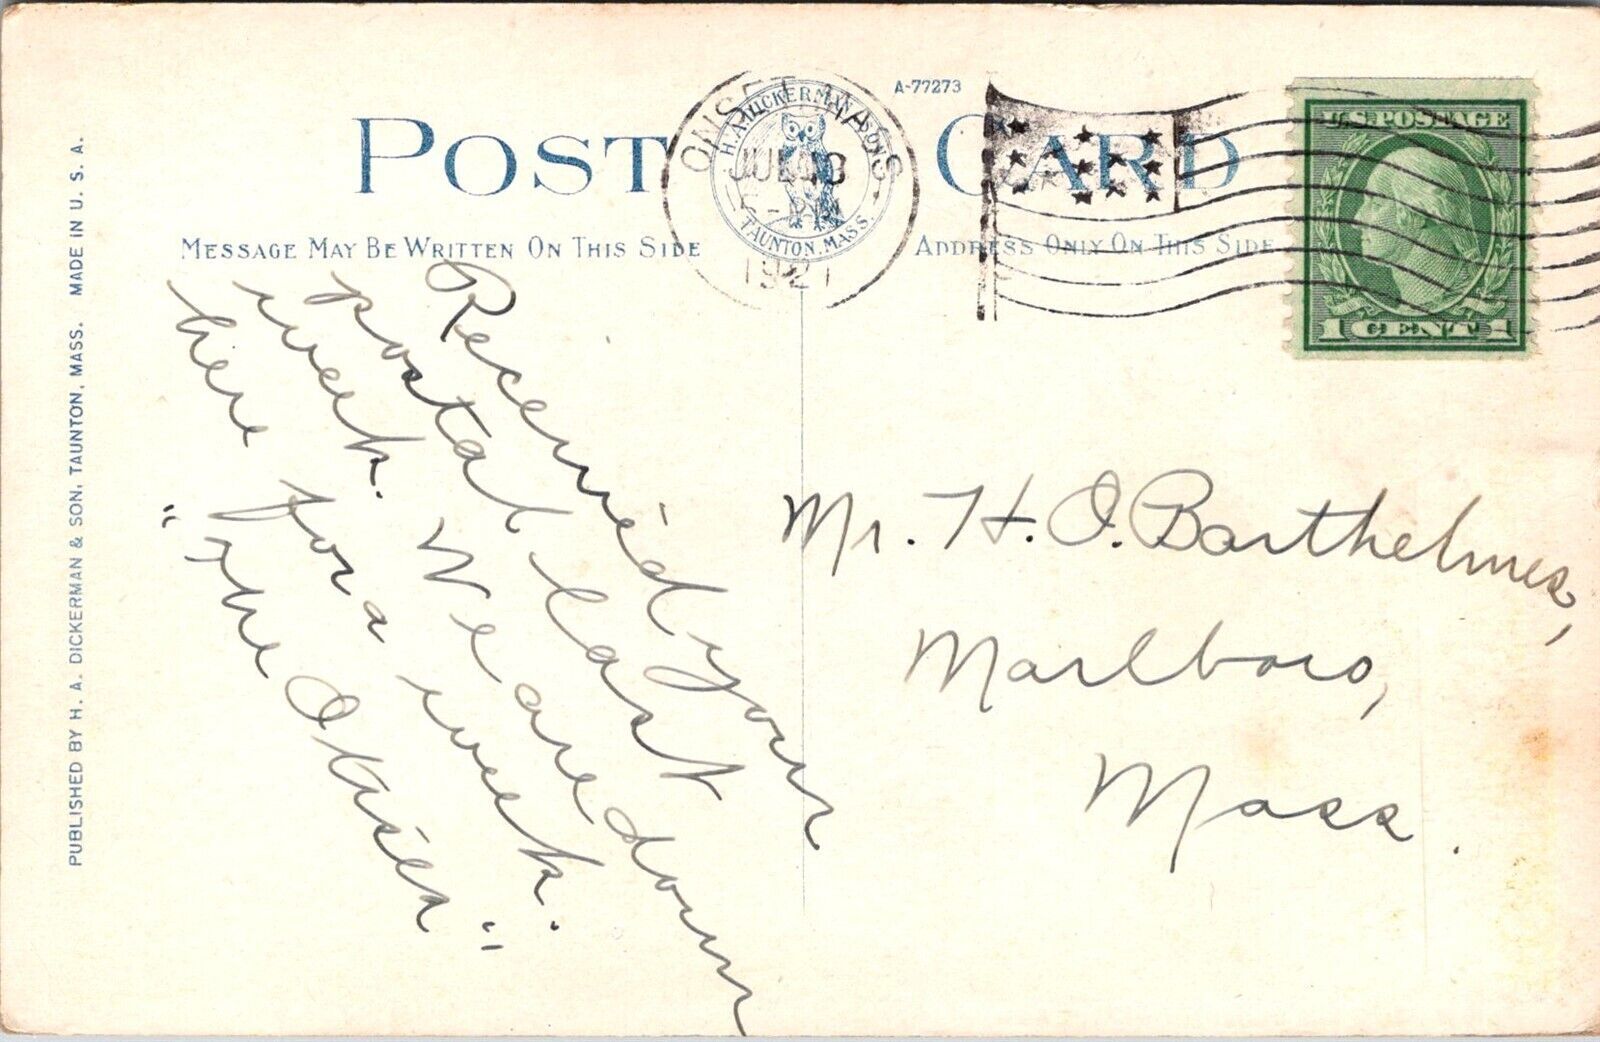 A-77273
POST CARD
ONSET, MASS
JUL
1921
H. A. DICKERMAN & SON
TAUNTON, MASS.
U.S. POSTAGE
1 CENT 1
MESSAGE MAY BE WRITTEN ON THIS SIDE
ADDRESS ONLY ON THIS SIDE
PUBLISHED BY H. A. DICKERMAN & SON, TAUNTON, MASS. MADE IN U. S. A.
Received your
postal last
week. We are down
here for a week.
"The Otises"
Mr. H. O. Barthelmes,
Marlboro,
Mass.